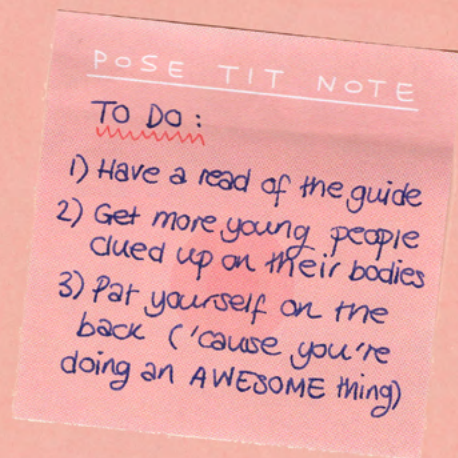 POSE TIT NOTE
TO DO:
1) Have a read of the guide
2) Get more young people
clued up on their bodies
3) Pat yourself on the
back ('cause you're
doing an AWESOME thing)